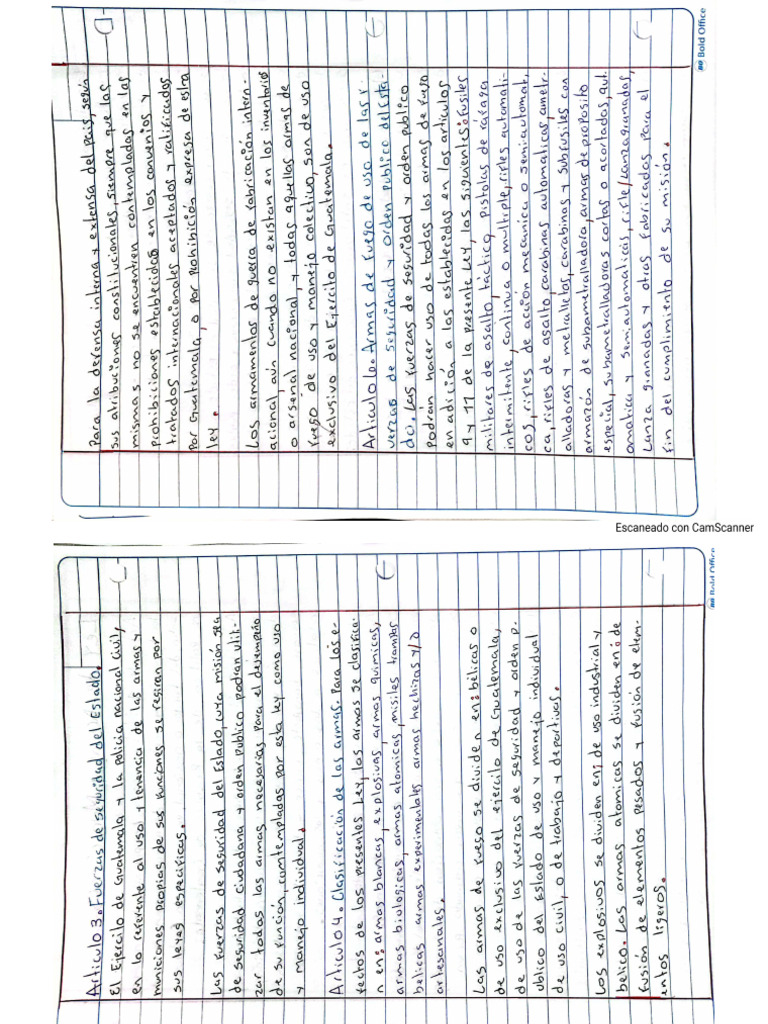 Para la defensa interna y externsa del pais, según
sus atribuciones constitucionales, siempre que las
mismas no se encuentren contempladas en las
prohibiciones establecidas en los convenios y
tratados internacionales aceptados y ratificados
por Guatemala, o por prohibición expresa de esta
ley.
Los armamentos de guerra de fabricación intern-
acional, aún cuando no existan en los inventarios
o arsenal nacional, y todas aquellas armas de
fuego de uso y manejo colectivo, son de uso
exclusivo del Ejercito de Guatemala.
Articulo 10. Armas de fuego de uso de las f.
uerzas de seguridad y orden publico del Esta-
do. Las fuerzas de seguridad y orden publico
podran hacer uso de todas las armas de fuego
en adición a las establecidas en los articulos
9 y 11 de la presente Ley, las siguientes: fusiles
militares de asalto, táctico, pistolas de ráfaga
intermitente, continua o multiple, rifles automati-
cos, rifles de acción mecanica o semi-automat.
ca, rifles de asalto, carabinas automaticas, ametr.
alladoras y metralletas, carabinas y subfusiles con
armazón de subametralladora, armas de proposito
especial, subametralladoras cortas o acortadas, aut.
omaticas y semiautomaticas, rifle/lanzagranadas,
Lanza granadas y otras fabricadas para el
fin del cumplimiento de su misión.
Bold Office
Escaneado con CamScanner
Articulo 3. Fuerzas de seguridad del Estado.
El Ejercito de Guatemala y la policia nacional civil,
en lo referente al uso y tenencia de las armas y
municiones propias de sus funciones se regiran por
sus leyes especificas.
Las fuerzas de seguridad del Estado, cuya misión sea
de seguridad ciudadana y orden publico podran utili-
zar todas las armas necesarias para el desempeño
de su función, contempladas por esta ley como uso
y manejo individual.
Articulo 4. Clasificación de las armas. Para los e-
fectos de los presentes Ley, las armas se clasifica
n en: armas blancas, explosivas, armas quimicas,
armas biologicas, armas atomicas, misiles trampas
belicas armas experimentales armas hechizas y/o
artesanales.
Las armas de fuego se dividen en: bélicas o
de uso exclusivo del ejercito de Guatemala,
de uso de las fuerzas de seguridad y orden p.
ublico del Estado de uso y manejo individual
de uso civil, o de trabajo y deportivas.
Los explosivos se dividen en; de uso industrial y
belico. Las armas atomicas se dividen en: de
fusión de elementos pesados y fusión de elem-
entos ligeros.
Bold Office